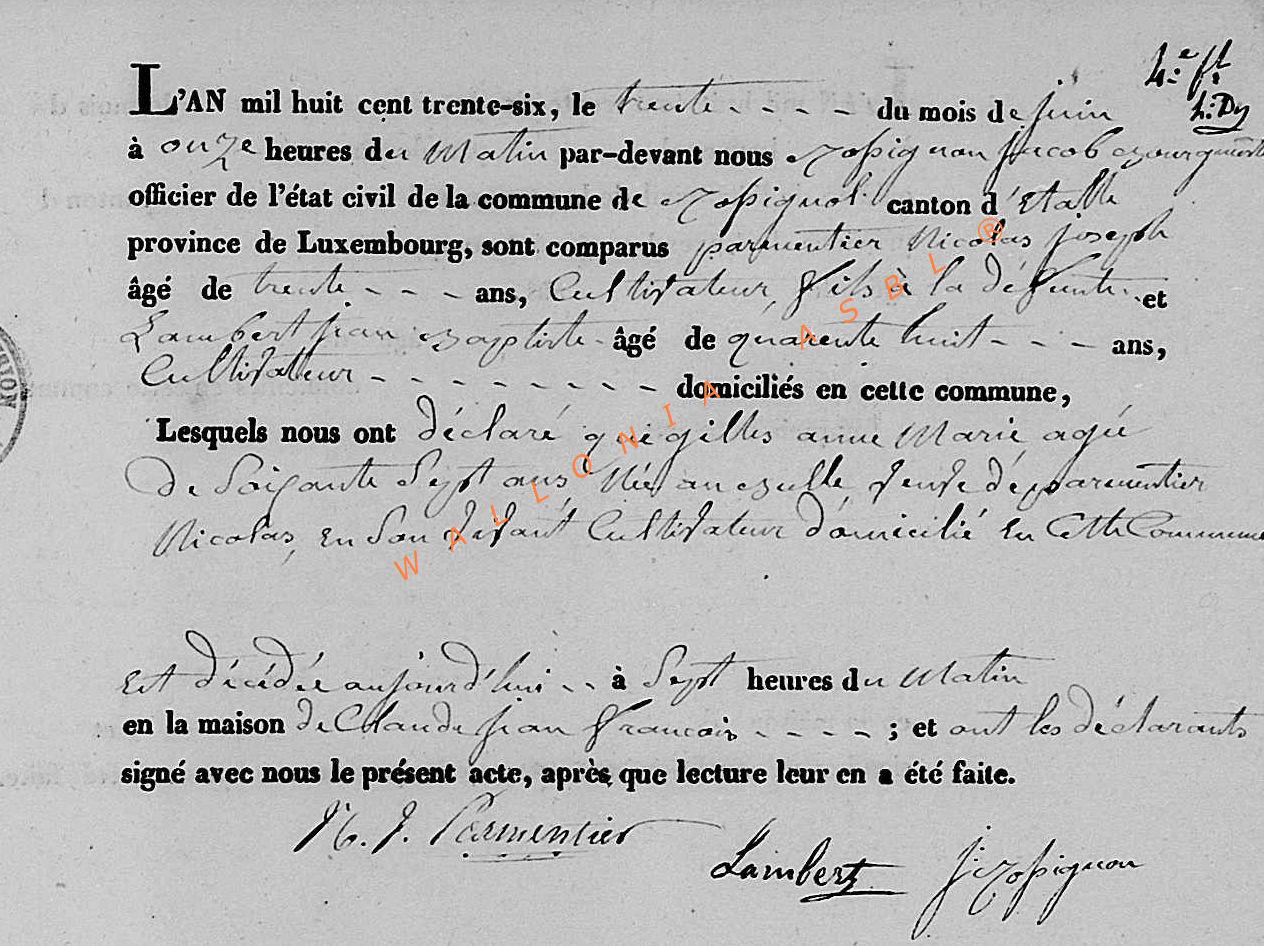 4.e ft
L'AN mil huit cent trente-six, le trente - - - - du mois de juin
à onze heures du Matin par-devant nous Rossignon Jacob Bourgmestre
officier de l'état civil de la commune de Rossignol canton d'Etalle
province de Luxembourg, sont comparus parmentier Nicolas Joseph
âgé de trente - - - ans, Cultivateur, fils à la défunte et
Lambert jean Baptiste âgé de quarente huit - - - ans,
Cultivateur - - - - - - - - domiciliés en cette commune,
Lesquels nous ont déclaré que gilles anne Marie agée
de Soixante Sept ans, Née a veuve de parmentier
Nicolas, en Son vivant Cultivateur domicilié en Cette Commune
Est décédée aujourd'hui - - à Sept heures du Matin
en la maison de Claude jean francois - - - - ; et ont les déclarants
signé avec nous le présent acte, après que lecture leur en a été faite.
N. J. Parmentier
Lambert J: Rossignon
WALLONIA ASBL ®